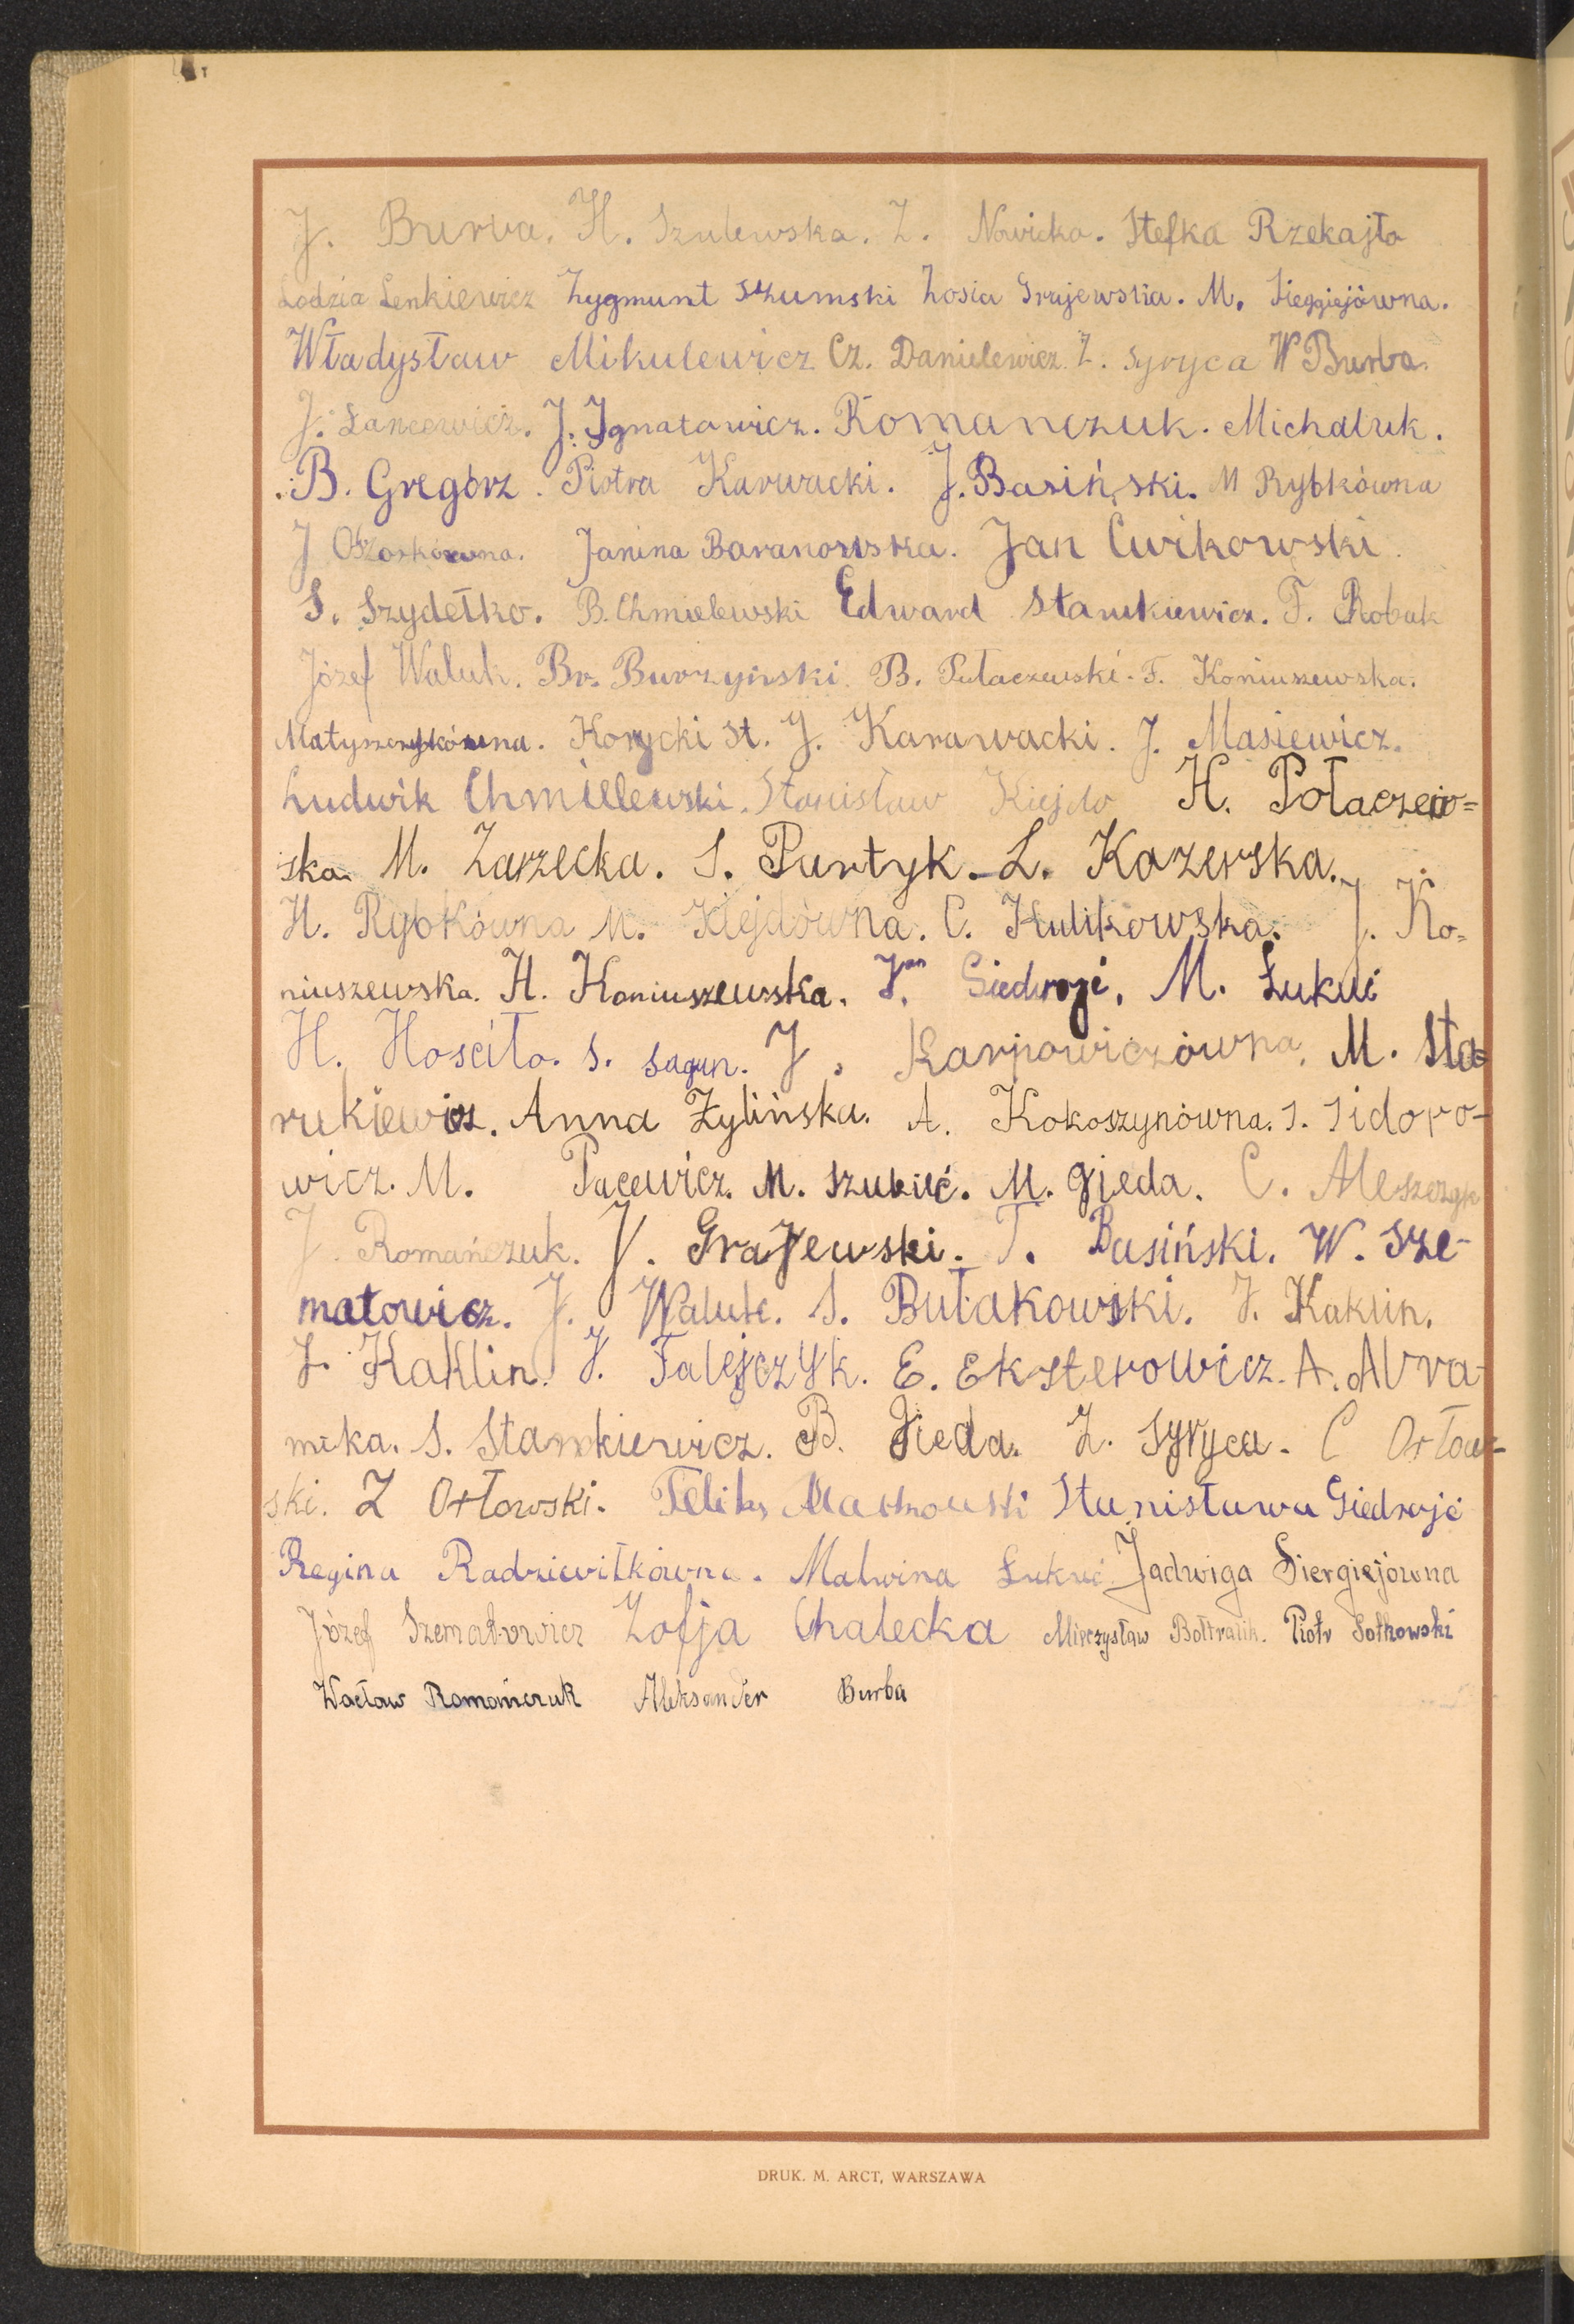 J. Burba. H. Szulewska. Z. Nowicka. Stefka Rzekajło
Lodzia Lenkiewicz Zygmunt Szumski Zosia Grajewska. M. Siergiejówna.
Władysław Mikulewicz Cz. Danielewicz. Z. Syryca W Burba.
J. Łancewicz. J. Ignatowicz. Romanczuk. Michaluk.
B. Gregórz. Piotra Karwacki. J. Basiński. M Rybkówna
J Janina Baranowska. Jan Cwikowski.
S. Szydełko. B. Chmielewski Edward Stankiewicz. F. Robak
Józef Waluk. Br. Burzyński. B. Pułaczewski. F. Koniuszewska.
Korycki St. J. Karawacki. J. Masiewicz.
Ludwik Chmielewski. Stanisław Kiejdo H. Połaczew=
ska. M. Zarzecka. S. Purtyk. L. Kozerska.
H. Rybkówna M. Kiejdówna. C. Kulikowska. J. Ko=
niuszewska. H. Koniuszewska. J. Giedrojć. M. Łukuć
H. Hościło. S. Sagun. J. Karpowiczówna. M. Sta=
rukiewicz. Anna Żylińska. A. Kokoszynówna. S. Sidoro-
wicz. M. Pacewicz. M. Szukieć. M. Gieda. C. Aleszczyk
J. Romańczuk. J. Grajewski. T. Basiński. W. Sze-
matowicz. J. Waluk. S. Bułakowski. J. Kaklin.
J. Kaklin. J. Falejczyk. E. Eksterowicz. A. Abra-
mka. S. Stankiewicz. B. Gieda. Z. Syryca. C Orłow-
ski. Z Orłowski. Feliks Stanisława Giedrojć
Regina Radziewiłkówna. Malwina Łukuć Jadwiga Siergiejówna
Józef Szematowicz Zofja Chalecka Mieczysław Bołtralik. Piotr Sołkowski
Wacław Romańczuk Aleksander Burba
DRUK. M. ARCT, WARSZAWA